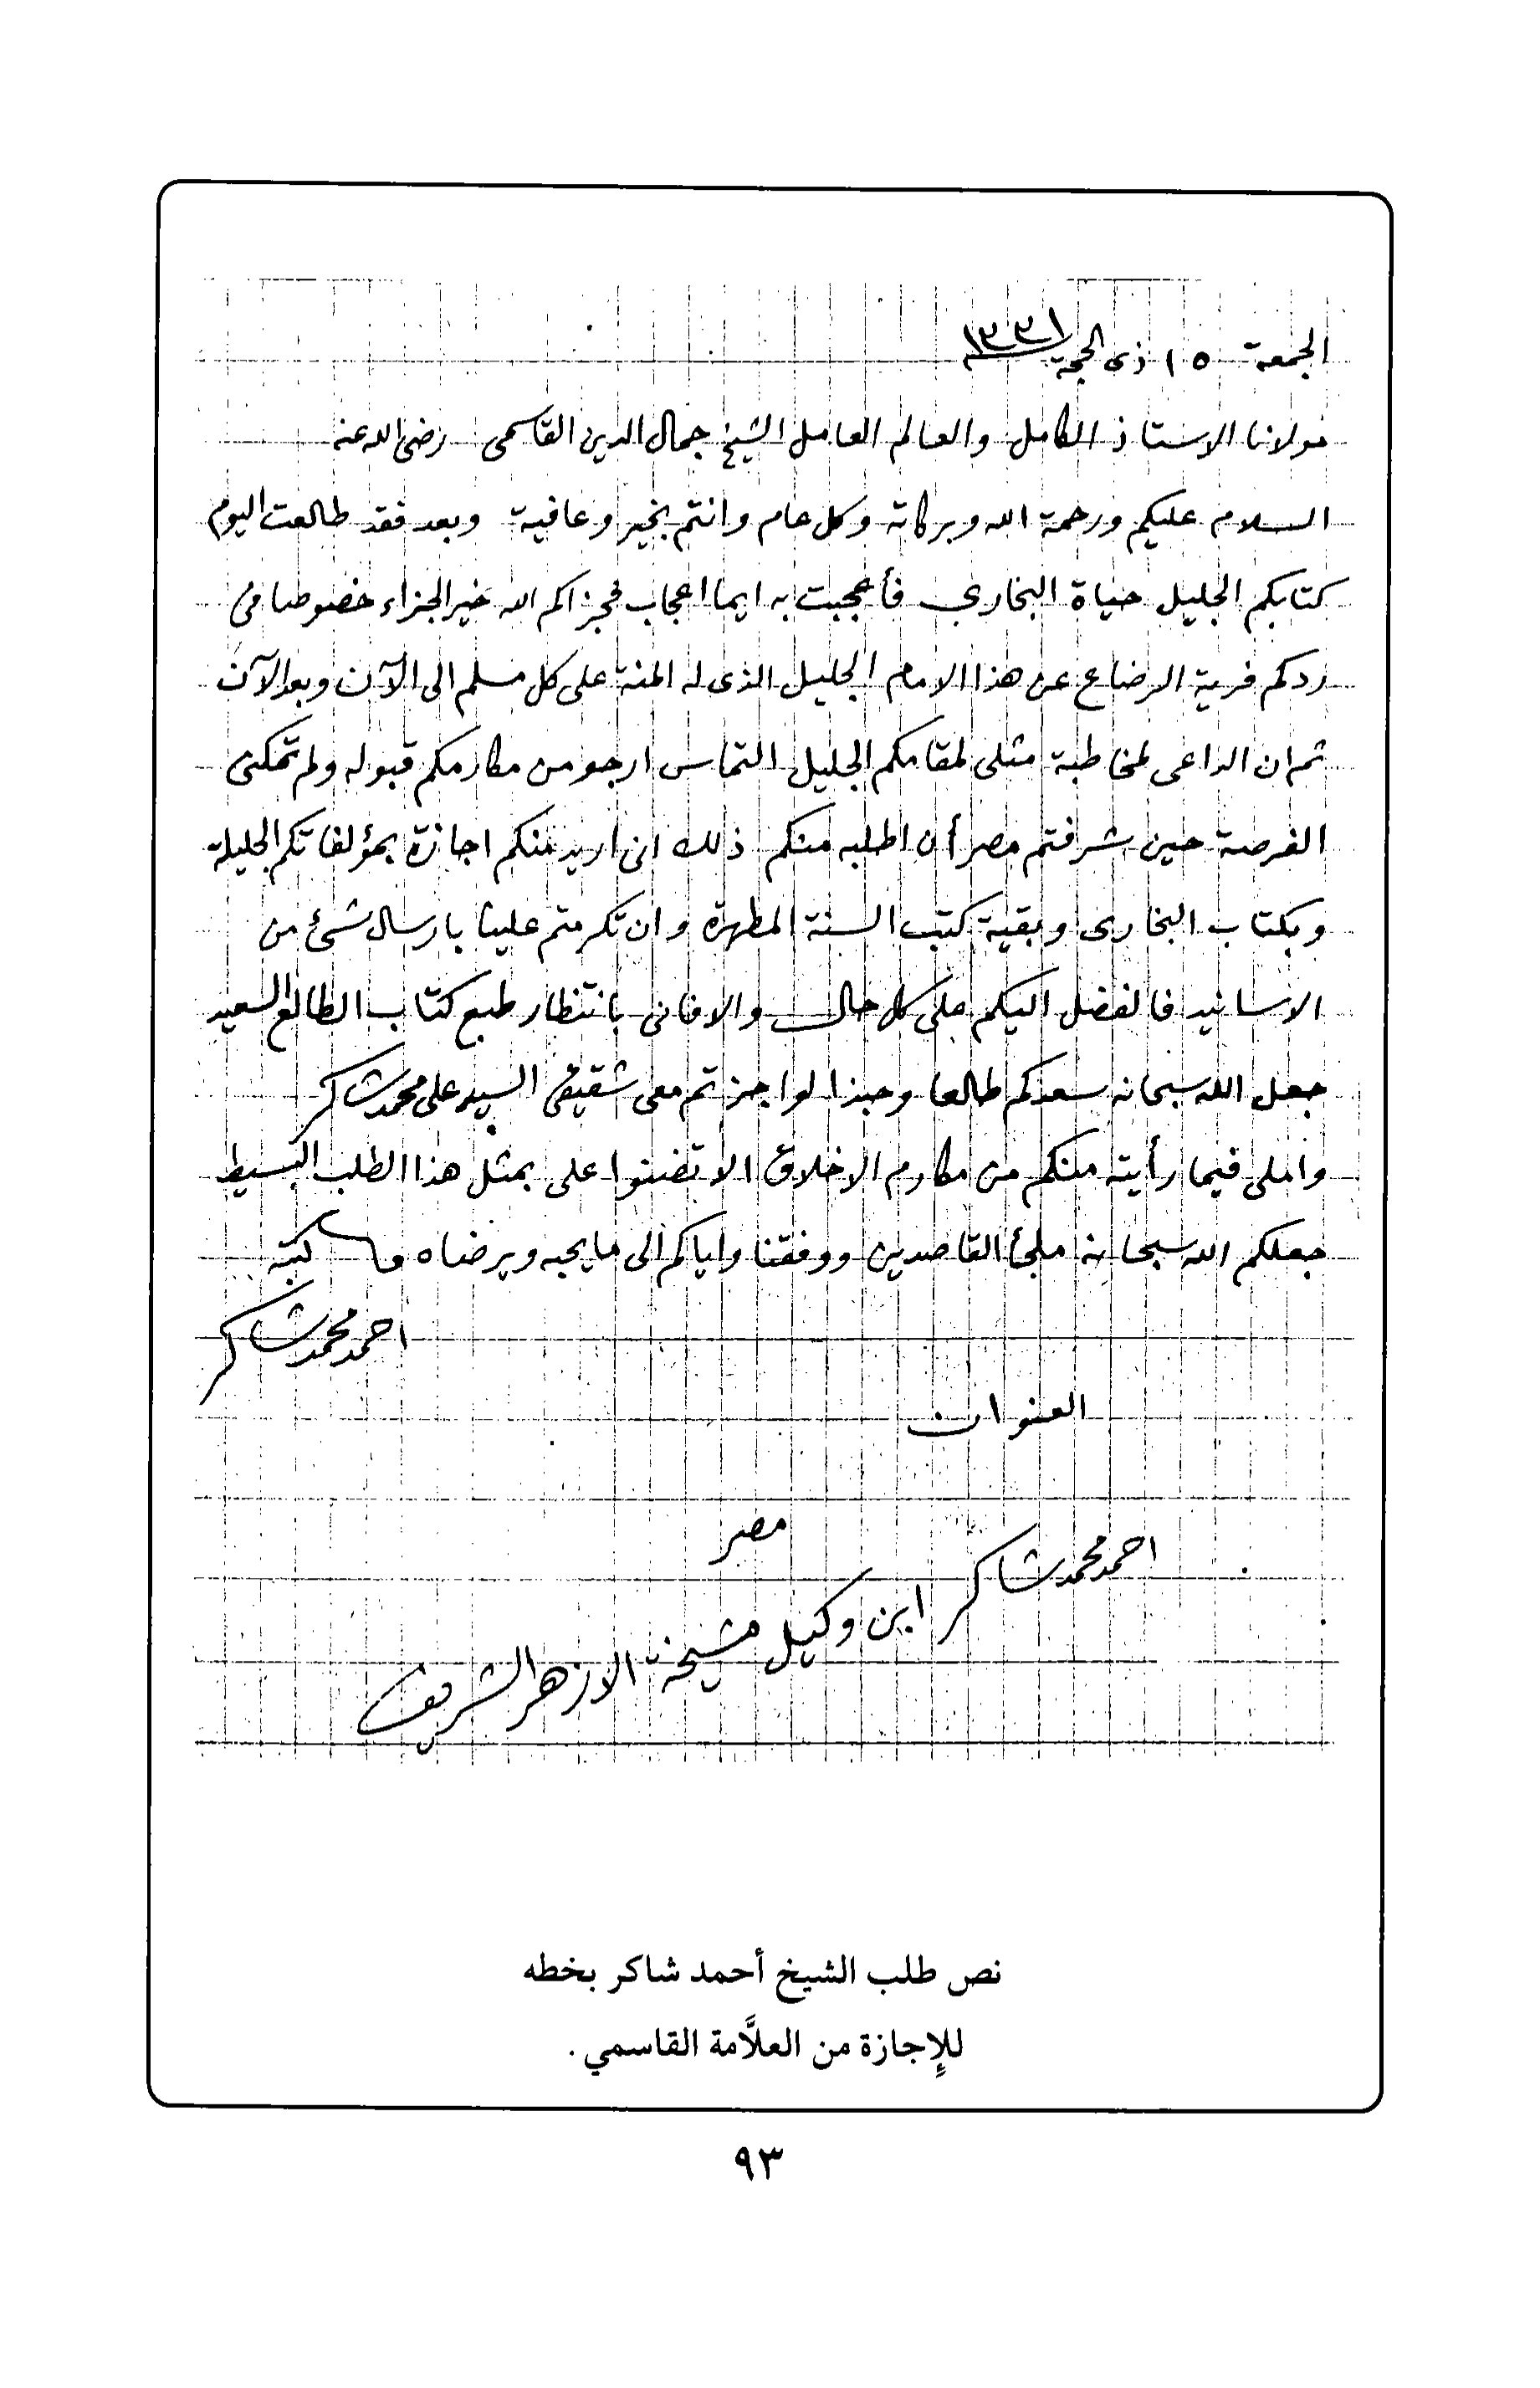 الجمعة ١٥ ذى الحجة ١٣٣١
مولانا الاستاذ الكامل والعالم العامل الشيخ جمال الدين القاسمى رضى الله عنه
السلام عليكم ورحمة الله وبركاته وكل عام وانتم بخير وعافية وبعد فقد طالعت اليوم
كتابكم الجليل حياة البخارى فأعجبت به ايما اعجاب فجزاكم الله خير الجزاء خصوصا فى
ردكم فرية الرضاع عن هذا الامام الجليل الذى له المنة على كل مسلم الى الآن وبعد الآن
ثم ان الداعى لمخاطبة مثلى لمقامكم الجليل التماس ارجو من مكارمكم قبوله ولم تمكنى
الفرصة حين شرفتم مصر أن اطلبه منكم ذلك انى اريد منكم اجازة بمؤلفاتكم الجليلة
وبكتاب البخارى وبقية كتب السنة المطهرة وان تكرمتم علينا بارسال شئ من
الاسانيد فالفضل اليكم على كل حال والا فانى بانتظار طبع كتاب الطالع السعيد
جعل الله سبحانه سعدكم طالعا وحبذا لو اجزتم معى شقيقى السيد على محمد شاكر
واملى فيما رأيته منكم من مكارم الاخلاق الا تضنوا على بمثل هذا الطلب البسيط
جعلكم الله سبحانه ملجأ القاصدين ووفقنا واياكم الى ما يحبه ويرضاه كتبه
احمد محمد شاكر
العنوان
مصر
احمد محمد شاكر ابن وكيل مشيخة الازهر الشريف
نص طلب الشيخ أحمد شاكر بخطه
للإجازة من العلاَّمة القاسمي .
٩٣